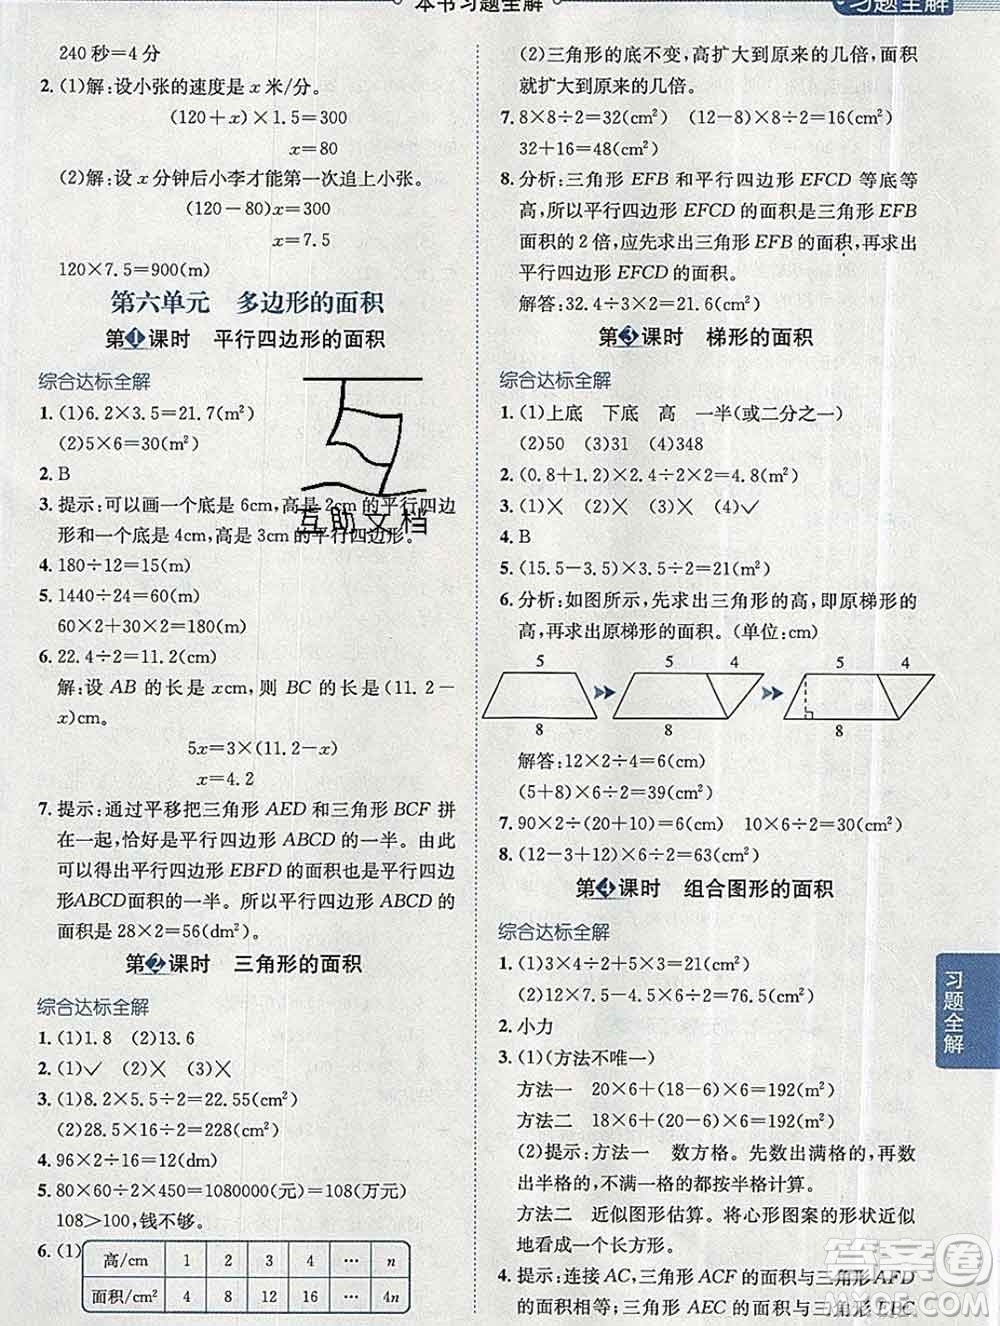 本书习题全解
习题全解
240秒=4分
2. (1)解:设小张的速度是 x 米/分。
(120+x)×1.5=300
x=80
(2)解:设 x 分钟后小李才能第一次追上小张。
(120-80)x=300
x=7.5
120×7.5=900(m)
第六单元 多边形的面积
第1课时 平行四边形的面积
综合达标全解
1. (1)6.2×3.5=21.7(m²)
(2)5×6=30(m²)
2. B
3. 提示:可以画一个底是 6cm,高是 2cm 的平行四边
形和一个底是 4cm,高是 3cm 的平行四边形。
4. 180÷12=15(m)
5. 1440÷24=60(m)
60×2+30×2=180(m)
6. 22.4÷2=11.2(cm)
解:设 AB 的长是 xcm,则 BC 的长是(11.2-
x)cm。
5x=3×(11.2-x)
x=4.2
7. 提示:通过平移把三角形 AED 和三角形 BCF 拼
在一起,恰好是平行四边形 ABCD 的一半。由此可
以得出平行四边形 EBFD 的面积也是平行四边
形ABCD面积的一半。所以平行四边形 ABCD 的
面积是 28×2=56(dm²)。
第2课时 三角形的面积
综合达标全解
1. (1)1.8 (2)13.6
2. (1)✓ (2)✗ (3)✗
3. (1)8.2×5.5÷2=22.55(cm²)
(2)28.5×16÷2=228(cm²)
4. 96×2÷16=12(dm)
5. 80×60÷2×450=1080000(元)=108(万元)
108>100,钱不够。
6. (1)
高/cm 1 2 3 4 … n
面积/cm² 4 8 12 16 … 4n
互助文档
(2)三角形的底不变,高扩大到原来的几倍,面积
就扩大到原来的几倍。
7. 8×8÷2=32(cm²) (12-8)×8÷2=16(cm²)
32+16=48(cm²)
8. 分析:三角形 EFB 和平行四边形 EFCD 等底等
高,所以平行四边形 EFCD 的面积是三角形 EFB
面积的 2 倍,应先求出三角形 EFB 的面积,再求出
平行四边形 EFCD 的面积。
解答:32.4÷3×2=21.6(m²)
第3课时 梯形的面积
综合达标全解
1. (1)上底 下底 高 一半(或二分之一)
(2)50 (3)31 (4)348
2. (0.8+1.2)×2.4×2=4.8(m²)
3. (1)✗ (2)✗ (3)✗ (4)✓
4. B
5. (15.5-3.5)×3.5÷2=21(m²)
6. 分析:如图所示,先求出三角形的高,即原梯形的
高,再求出原梯形的面积。(单位:cm)
5 5 4 5 4
8 8 8
解答:12×2÷4=6(cm)
(5+8)×6÷2=39(cm²)
7. 90×2÷(20+10)=6(cm) 10×6÷2=30(cm²)
8. (12-3+12)×6÷2=63(cm²)
第4课时 组合图形的面积
综合达标全解
1. (1)3×4+6×3÷2=21(cm²)
(2)12×7.5-4.5×6÷2=76.5(cm²)
2. 小力
3. (1)(方法不唯一)
方法一 20×6+(18-6)×6=192(m²)
方法二 18×6+(20-6)×6=192(m²)
(2)提示:方法一 数方格。先数出满格的,再数
出半格的,不满一格的都按半格计算。
方法二 近似图形估算。将心形图案的形状近似
地看成一个长方形。
4. 提示:连接 AC,三角形 ACF 的面积与三角形 AFD
的面积相等;三角形 AEC 的面积与三角形 EBC
习题全解
答案圈